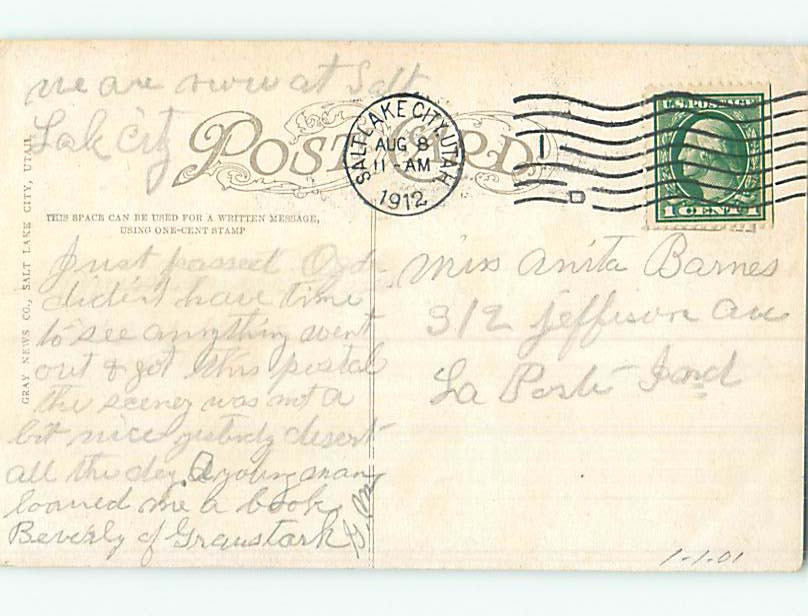 we are now at Salt
Lake City
POST CARD
SALT LAKE CITY, UTAH
AUG 8
11-AM
1912
1
D
U.S. POSTAGE
1 CENT 1
THIS SPACE CAN BE USED FOR A WRITTEN MESSAGE,
USING ONE-CENT STAMP
GRAY NEWS CO., SALT LAKE CITY, UTAH
Just passed Ogd
didn't have time
to see anything went
out & got this postal
the scenery was not a
bit nice yesterday desert
all the day. A young man
loaned me a book
Beverly of Graustark
Miss Anita Barnes
312 Jefferson Ave
La Porte Ind
1-1-01